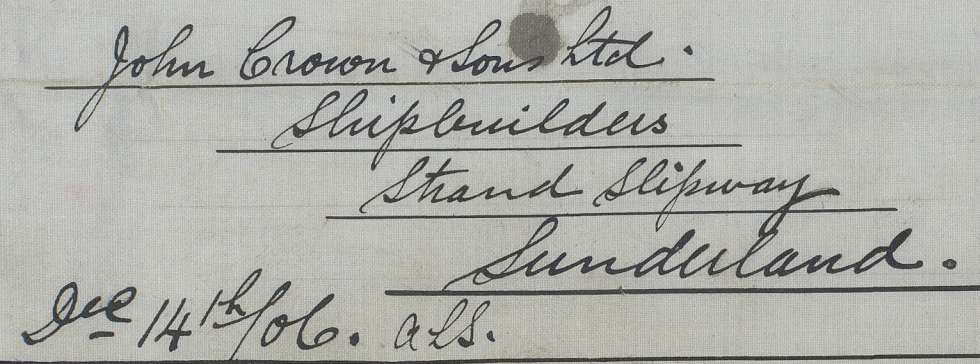 John Crown & Sons Ltd.
Shipbuilders
Strand Slipway
Sunderland.
Dec 14th/06. ALS.